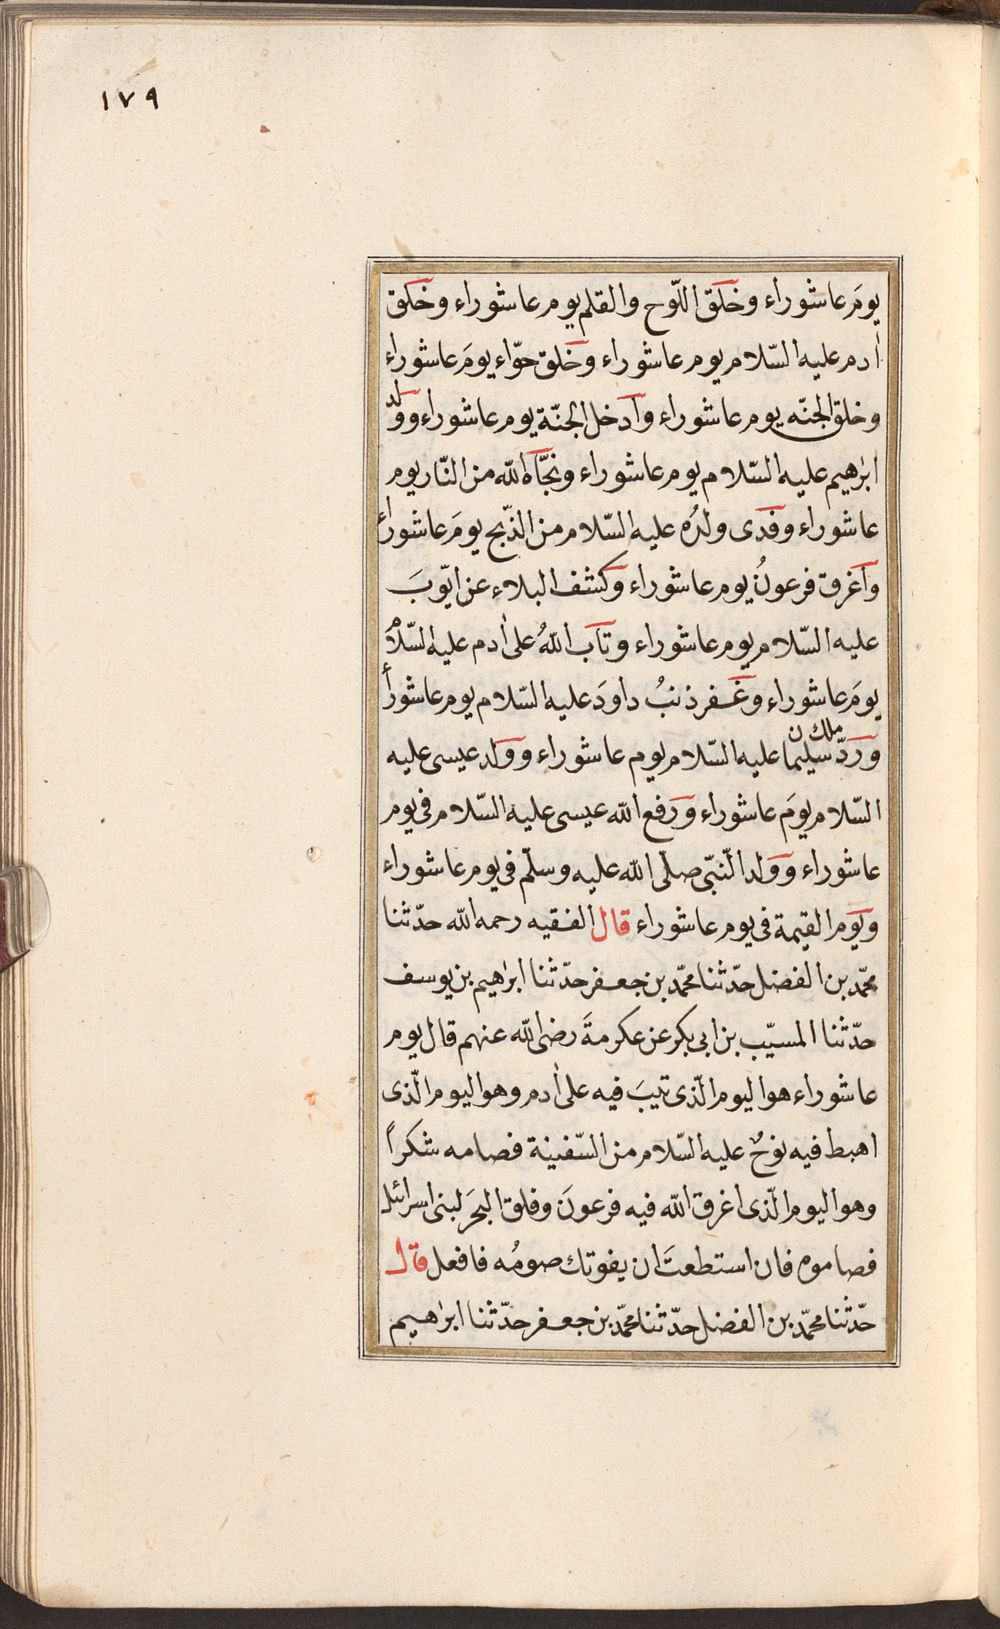 ١٧٩
يومَ عاشوراء وخلق اللّوح والقلم يوم عاشوراء وخلق
اٰدم عليه السّلام يوم عاشوراء وخلق حوّاء يومَ عاشوراء
وخلق الجنّه يوم عاشوراء وادخل الجنّة يوم عاشوراء وولد
ابرٰهيم عليه السّلام يوم عاشوراء ونجّاه اللّه من النّار يوم
عاشوراء وفدى ولدُه عليه السّلام من الذّبح يومَ عاشوراء
واغرق فرعونُ يوم عاشوراء وكشف البلاء عن ايّوبَ
عليه السّلام يوم عاشوراء وتاب اللّهُ على اٰدم عليه السّلام
يومَ عاشوراء وغفر ذنبُ داودَ عليه السّلام يوم عاشورأ
وردّ ملك سليمان عليه السّلام يوم عاشوراء وولد عيسى عليه
السّلام يومَ عاشوراء ورفع اللّه عيسى عليه السّلام فى يوم
عاشوراء وولد النّبىّ صلّى اللّه عليه وسلّم فى يوم عاشوراء
ويوم القيمة فى يوم عاشوراء قال الفقيه رحمه اللّه حدّثنا
محمّد بن الفضل حدّثنا محمّد بن جعفر حدّثنا ابرٰهيم بن يوسف
حدّثنا المسيّب بن ابى بكر عن عكرمةَ رضى اللّه عنهم قال يوم
عاشوراء هو اليوم الّذى تيبَ فيه على اٰدم وهو اليوم الّذى
اهبط فيه نوحٌ عليه السّلام من السّفينة فصامه شكراً
وهو اليوم الّذى اغرق اللّه فيه فرعونَ وفلق البحَر لبنى اسرائل
فصاموه فان استطعتَ ان يفوتك صومُه فافعل قال
حدّثنا محمّد بن الفضل حدّثنا محمّد بن جعفر حدّثنا ابرٰهيم